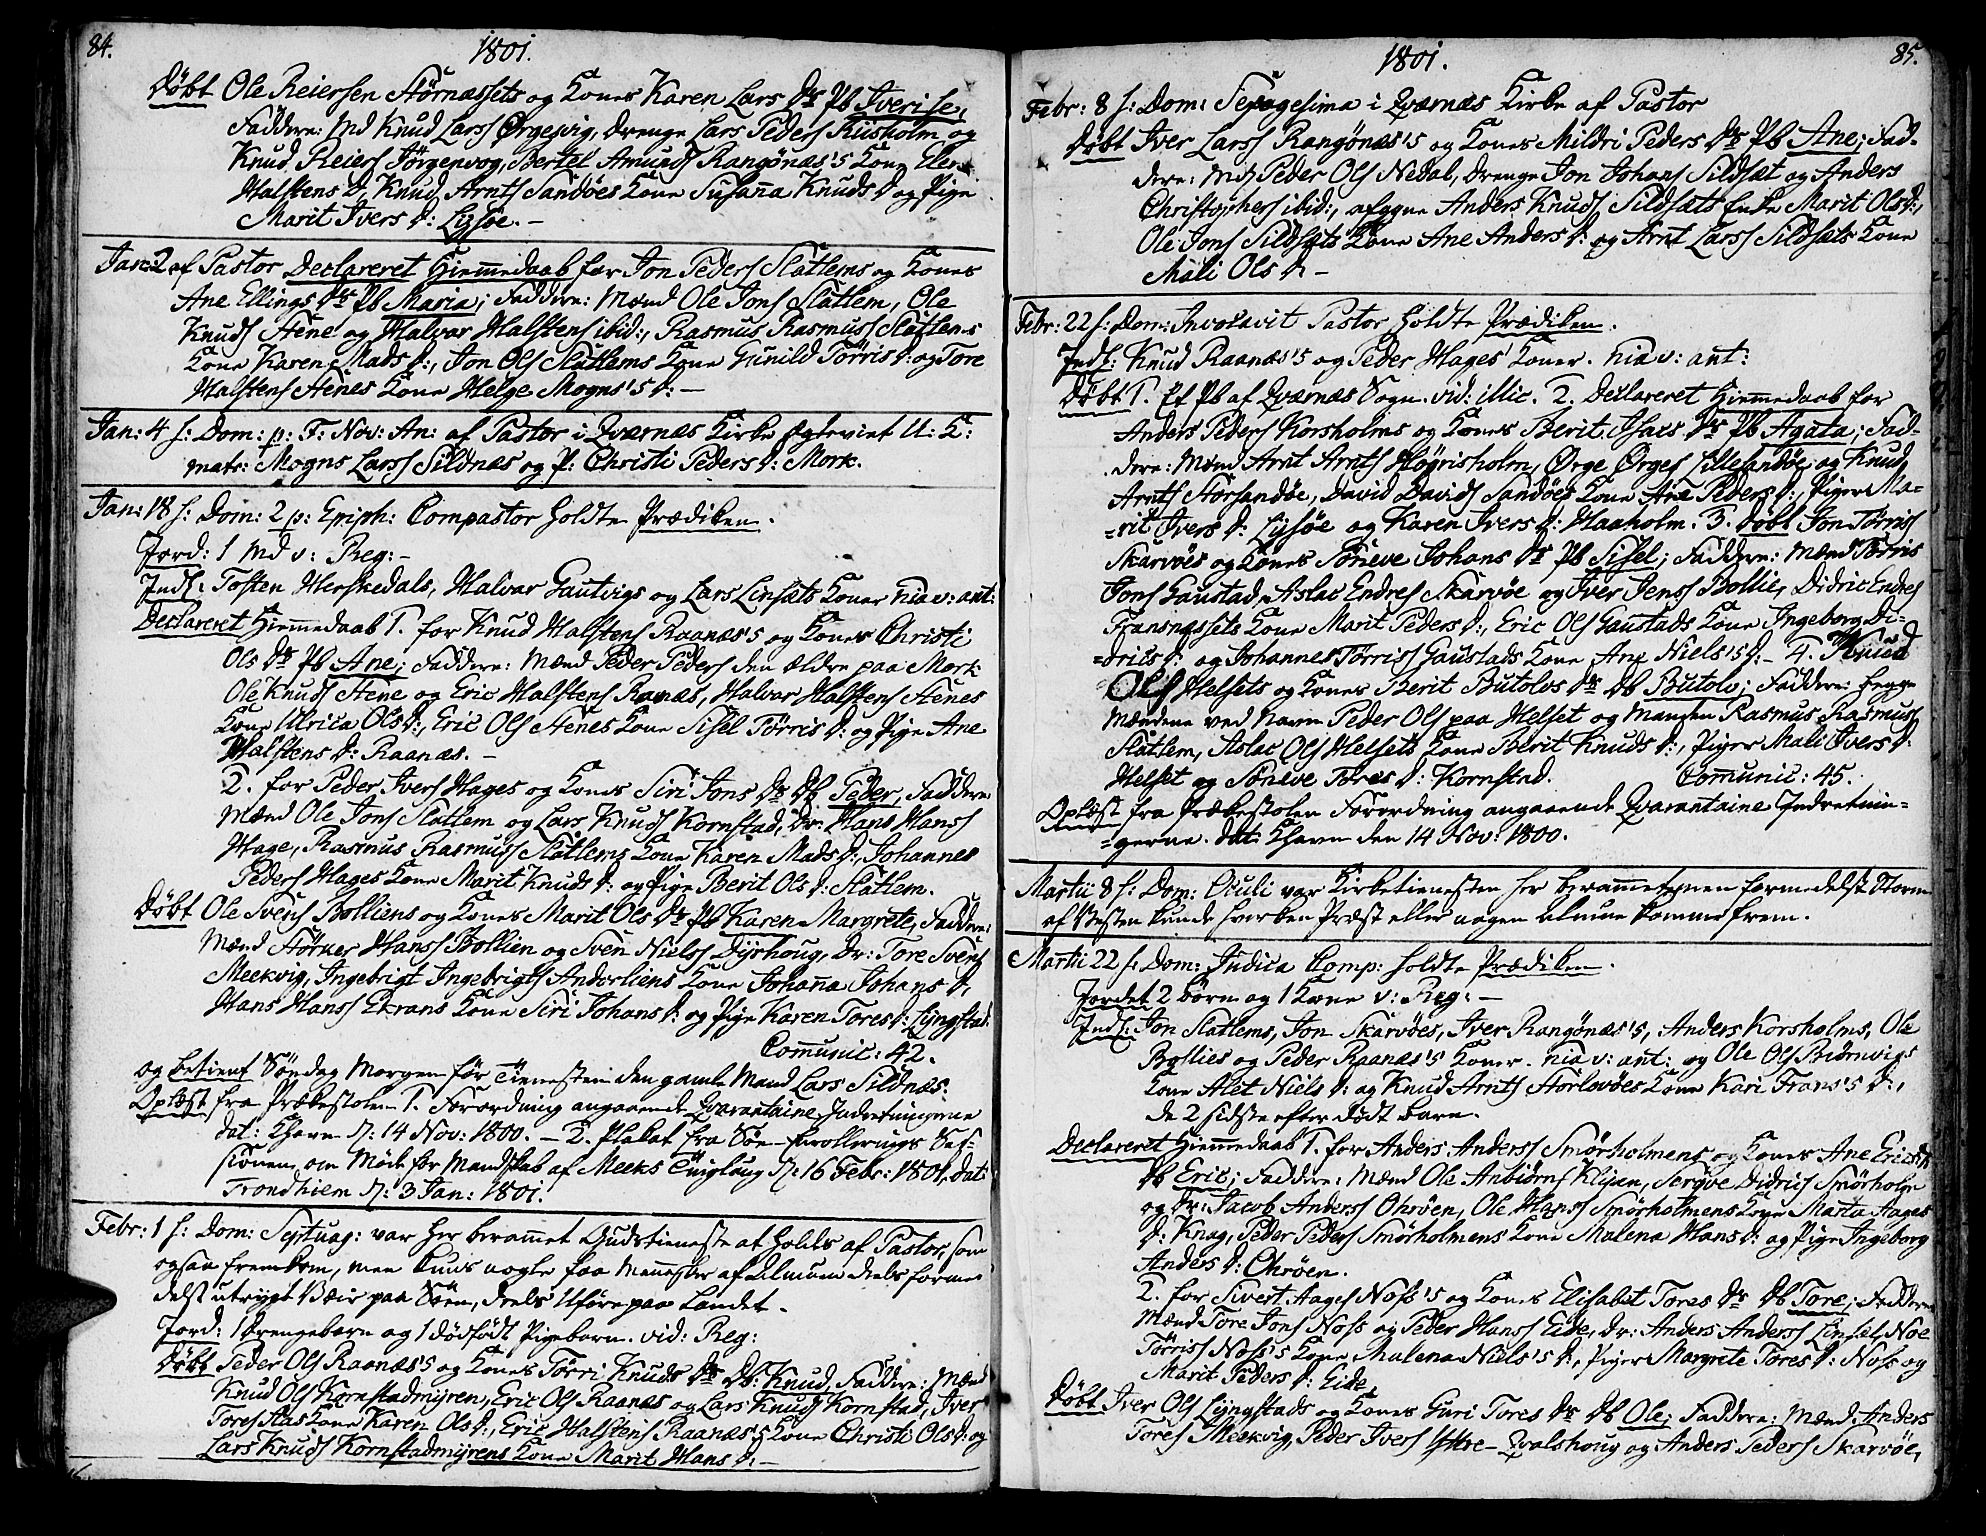 84.
1801.
Döbt Ole Reiersen Störnæssets og Kones Karen Lars Dr Pb Iverise,
Faddere: Md Knud Larss Ørgesvig, Drenge Lars Peders Riisholm og
Knud Reiers Jörgenvog, Bertel Amunds Rangönæs's Kone Elen
Halstens D, Knud Arnts Sandöes Kone Susana Knuds D og Pige
Marit Ivers D: Lyssöe. –
Jan: 2 af Pastor Declareret Hiemmedaab for Jon Peders Slatlems og Kones
Ane Ellings Dr Pb Maria; Faddere: Mænd Ole Jons Slatlem, Ole
Knuds Stene og Halvar Halstens ibid:, Rasmus Rasmuss Slatlems
Kone Karen Mads D:, Jon Ols Slatlems Kone Gunild Törris D: og Tore
Halstens Stenes Kone Helge Mogns's D: –
Jan: 4 s: Dom: p: F: Nov: An: af Pastor i Qværnæs Kirke Egteviet U: K:
mate: Mogns Larss Sildnæs og P: Christi Peders D: Mork.
Jan: 18 s: Dom: 2 p: Epiph: Compastor holdte Prædiken.
Jord: 1 Md v: Reg: –
Indl: Tosten Herskedals, Halvar Gautvigs og Lars Linsæts Koner hia v: ant:
Declareret Hiemmedaab 1. for Knud Halstens Raanæs's og Kones Christi
Ols Dr Pb Ane; Faddere: Mænd Peder Peders den ældre paa Mork
Ole Knuds Stene og Eric Halstens Ranæs, Halvar Halstens Stenes
Kone Ulrica Ols D:, Eric Ols Stenes Kone Sisel Törris D: og Pige Ane
Halstens D: Raanæs. –
2. for Peder Ivers Hages og Kones Siri Jons Dr Db Peder, Faddere
Mænd Ole Jons Slatlem og Lars Knuds Kornstad, Dr: Hans Hanss
Hage, Rasmus Rasmuss Slatlems Kone Karen Mads D:, Johannes
Peders Hages Kone Marit Knuds D: og Pige Berit Ols D: Slatlem.
Döbt Ole Svens Bolliens og Kones Marit Ols Dr Pb Karen Margrete, Faddere:
Mænd Störker Hanss Bollien og Sven Nielss Dyrhoug, Dr: Tore Svens
Meekvig, Ingebrigt Ingebrigts Anderliens Kone Johana Johans D,
Hans Hanss Ekrans Kone Siri Johans D: og Pige Karen Tores D: Lyngstad.
Communic: 42.
og betient Söndag Morgen för Tienesten den gamle Mand Lars Sildnæs.
Oplæst fra Prækestolen 1. Forordning angaaende Qvarantaine Indretningerne
dat: Khavn d: 14 Nov: 1800. – 2. Plakat fra Söe-Enrollerings Ses-
sionen, om Möde for Mandskab af Meeks Tinglaug d: 16 Febr: 1801, dat:
Trondhiem d: 3 Jan: 1801.
Febr: 1 s: Dom: Septuag: var her berammet Gudstieneste at holds af Pastor, som
ogsaa fremkom, men kuns nogle faa Mennesker af Almuen deels forme-
delst utrygt Veir paa Söen, deels Uföre paa Landet.
Jord: 1 Drengebarn og 1 dödfödt Pigebarn. vid: Reg:
Döbt Peder Ols Raanæs's og Kones Törri Knuds Dr Db: Knud, Faddere: Mænd
Knud Ols Kornstadmyren, Eric Ols Raanæs og Lars Knuds Kornstad, Iver
Tores Slas Kone Karen Ols D:, Eric Halstens Raanæs's Kone Christi Ols D: og
Lars Knuds Kornstadmyrens Kone Marit Hans D: –
1801.
85.
Febr: 8 s: Dom: Sexagesima i Qværnæs Kirke af Pastor
Döbt Iver Larss Rangönæs's og Kones Mildri Peders Dr Pb Ane; Fad-
dere: Md Peder Ols Nedal, Drenge Jon Johans Sildsæt og Anders
Christophers ibid:, afgagne Anders Knuds Sildsæts Enke Marit Ols D:,
Ole Jons Sildsæts Kone Ane Anders D: og Arnt Larss Sildsæts Kone
Mali Ols D: –
Febr: 22 s: Dom: Invocavit Pastor holdte Prædiken.
Indl: Knud Raanæs's og Peder Hages Koner. hia v: ant:
Döbt 1. Et Pb af Qværnæs Sogn. vid: illic. 2. Declareret Hiemmedaab for
Anders Peders Korsholms og Kones Berit Isacs Dr Pb Agata; Fad-
dere: Mænd Arnt Arnts Högrisholm, Ørge Ørges Lillesandöe og Knud
Arnts Storsandöe, David Davids Sandöes Kone Ane Peders D:, Piger Ma-
-rit Ivers D: Lyssöe og Karen Ivers D: Haaholm. 3. Döbt Jon Törriss
Skarvöes og Kones Sönneve Johans Dr Pb Sisel; Faddere: Mænd Törris
Jons Gaustad, Aslac Endres Skarvöe og Iver Jenss Bollie, Didric Endres
Fransnæssets Kone Marit Peders D:, Eric Ols Gaustads Kone Ingeborg Di-
-drics D: og Johannes Törriss Gaustads Kone Ane Niels's D: – 4. Knud
Ols Helsets og Kones Berit Butolvs Dr Db Butolv; Faddere: begge
Mændene ved Navn Peder Ols paa Helset og Manden Rasmus Rasmuss
Slatlem, Aslac Ols Helsets Kone Berit Knuds D:, Piger Mali Ivers D:
Helset og Söneve Tores D: Kornstad. Communic: 45.
Oplæst fra Prækestolen Forordning angaaende Qvarantaine Indretnin-
-gerne. dat: Khavn den 14 Nov: 1800.
Martii 8 s: Dom: Oculi var Kirketienesten her berammet men formedelst Storm
af Vesten kunde hverken Præst eller nogen Almue komme frem.
Martii 22 s: Dom: Judica Comp: holdte Prædiken.
Jordet 2 Börn og 1 Kone v: Reg: –
Indl: Jon Slatlems, Jon Skarvöes, Iver Rangönæs's, Anders Korsholms, Ole
Bollies og Peder Raanæs's Koner. hia v: ant: og Ole Ols Biörnvigs
Kone Alet Niels D: og Knud Arnts Storlevöes Kone Kari Frans's D:,
de 2 sidste efter dödt Barn.
Declareret Hiemmedaab 1. for Anders Anderss Smörholmens og Kones Ane Erics Dr
Db Eric; Faddere: Mænd Ole Anbiörns Klisan, Sergve Didrics Smörholm
og Dr: Jacob Anderss Ohröen, Ole Hanss Smörholmens Kone Marta Aages
D: Knag, Peder Peders Smörholmens Kone Malena Hans D: og Pige Ingeborg
Anders D: Ohröen.
2. for Sivert Aages Noss's og Kones Elisabet Tores Dr Db Tore; Faddere
Mænd Tore Jons Noss og Peder Hanss Eide, Dr: Anders Anderss Linset, Noe
Törriss Noss's Kone Malena Niels's D:, Piger Margrete Tores D: Noss og
Marit Peders D: Eide
Döbt Iver Ols Lyngstads og Kones Guri Tores Dr Db Ole; Faddere: Mænd Anders
Tores Meekvig, Peder Ivers Yttre-Qvalshoug og Anders Peders Skarvöe,